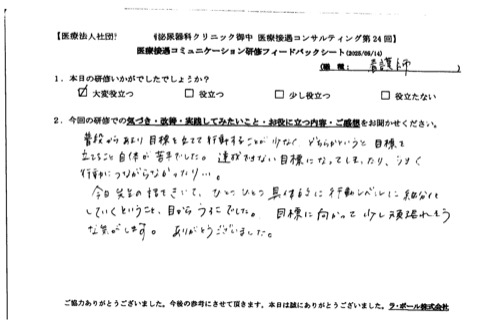 【医療法人社団　泌尿器科クリニック御中 医療接遇コンサルティング第24回】
医療接遇コミュニケーション研修フィードバックシート(2025/06/14)
(職種： 看護師 )
1．本日の研修いかがでしたでしょうか？
☑ 大変役立つ □ 役立つ □ 少し役立つ □ 役立たない
2．今回の研修での気づき・改善・実践してみたいこと・お役に立つ内容・ご感想をお聞かせください。
普段からあまり目標を立てて行動することが少なく、どちらかというと目標を
立てること自体が苦手でした。達成できない目標になってしまったり、うまく
行動につながらなかったり…。
今日先生の話をきいて、ひとつひとつ具体的に行動レベルに細分化
していくということ、目からうろこでした。目標に向かって少し頑張れそう
な気がします。ありがとうございました。
ご協力ありがとうございました。今後の参考にさせて頂きます。本日は誠にありがとうございました。ラ・ポール株式会社